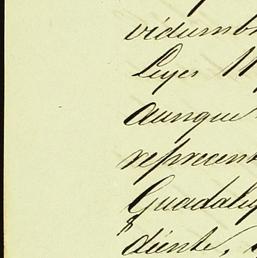 vidumb
Leyes
aunque
reprecen
Guadalu
diente,